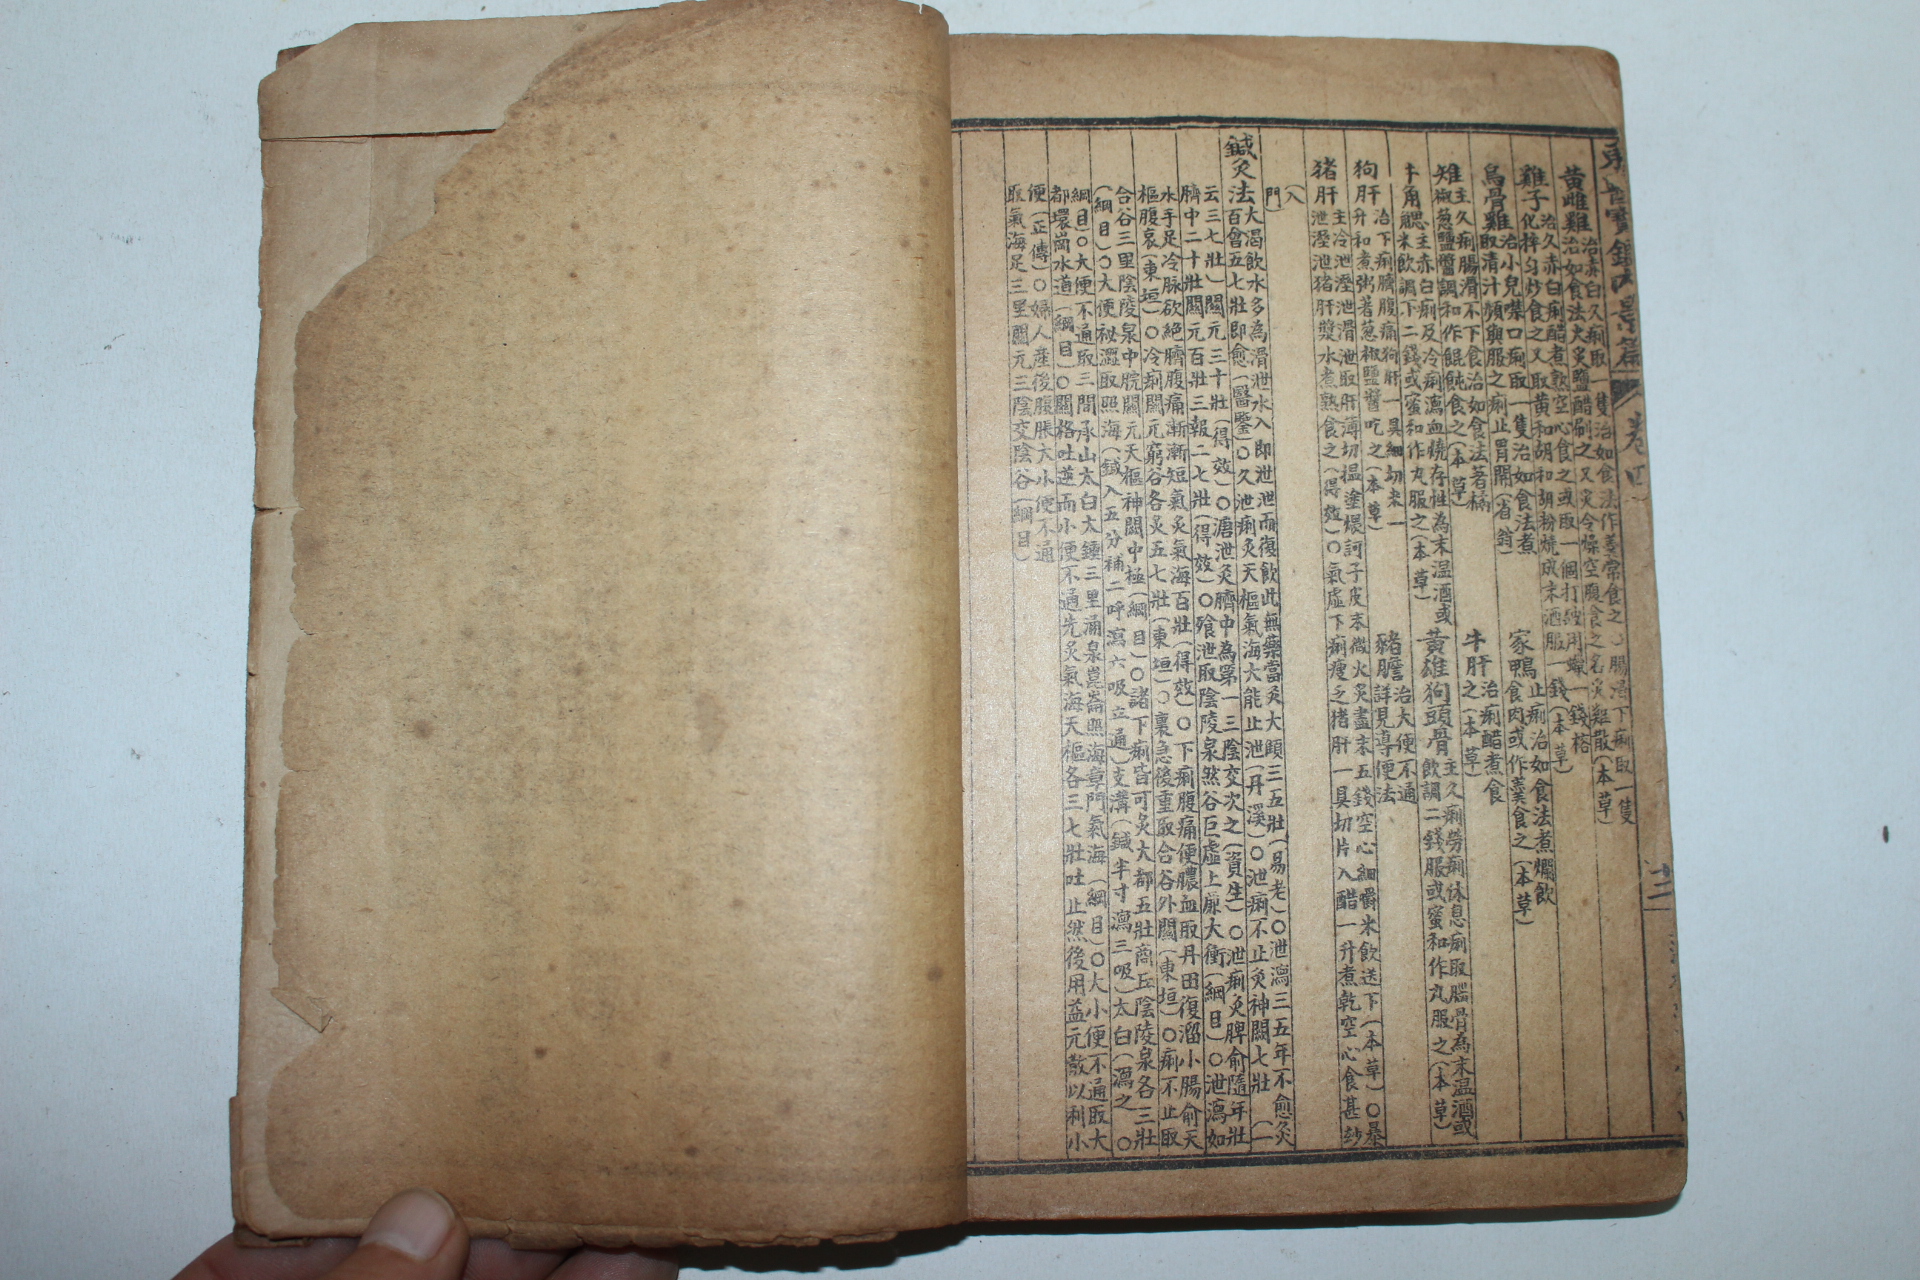 東醫寶鑑內景篇 卷四 十二
黃雌雞 治赤白久痢取一隻治如食法作羹常食之○腸滑下痢取一隻
治如食法火炙鹽醋刷之又炙令燥空腹食之名炙雞散(本草)
雞子 治久赤白痢醋煮熟空心食之或取一個打破用蠟一錢熔
化拌勻炒食之又取黃和胡和胡粉燒成末酒服一錢(本草)
烏骨雞 治小兒噤口痢取一隻治如食法煮
取清汁頻與服之痢止胃開(省翁)
家鴨 止痢治如食法煮爛飲
食肉或作羹食之(本草)
雉 主久痢腸滑不下食治如食法著橘
椒葱鹽醬調和作餛飩食之(本草)
牛肝 治痢醋煮食
之(本草)
牛角䚡 主赤白痢及冷痢瀉血燒存性為末温酒或
米飲調下二錢或蜜和作丸服之(本草)
黃雄狗頭骨 主久痢勞痢休息痢取腦骨為末温酒或
飲調二錢服或蜜和作丸服之(本草)
狗肝 治下痢臍腹痛狗肝一具細切米一
升和煮粥著葱椒鹽醬吃之(本草)
豬膽 治大便不通
詳見導便法
猪肝 主冷泄溼泄滑泄取肝薄切揾塗煨訶子皮末微火炙盡末五錢空心細嚼米飲送下(本草)○暴
泄溼泄猪肝漿水煮熟食之(得效)○氣虛下痢瘦乏猪肝一具切片入醋一升煮乾空心食甚玅
(入
門)
鍼灸法 大渴飲水多為滑泄水入即泄泄而復飲此無藥當灸大顀三五壯(易老)○泄瀉三五年不愈灸
百會五七壯即愈(醫鑒)○久泄痢灸天樞氣海大能止泄(丹溪)○泄痢不止灸神闕七壯(一
云三七壯)關元三十壯(得效)○溏泄灸臍中為第一三陰交次之(資生)○泄痢灸脾俞隨年壯
臍中二十壯關元百壯三報二七壯(得效)○飱泄取陰陵泉然谷巨虛上廉大衝(綱目)○泄瀉如
水手足冷脉欲絕臍腹痛漸漸短氣灸氣海百壯(得效)○下痢腹痛便膿血取丹田復溜小腸俞天
樞腹哀(東垣)○冷痢關元窮谷各灸五七壯(東垣)○裏急後重取合谷外關(東垣)○痢不止取
合谷三里陰陵泉中脘關元天樞神闕中極(綱目)○諸下痢皆可灸大都五壯商丘陰陵泉各三壯
(綱目)○大便祕澀取照海(鍼入五分補二呼瀉六吸立通)支溝(鍼半寸瀉三吸)太白(瀉之)○
綱目○大便不通取三間承山太白大鍾三里湧泉崑崙照海章門氣海(綱目)○大小便不通取大
都環崗水道(綱目)○關格吐逆而小便不通先灸氣海天樞各三七壯吐止然後用益元散以利小
便(正傳)○婦人產後腹脹大小便不通
取氣海足三里關元三陰交陰谷(綱目)